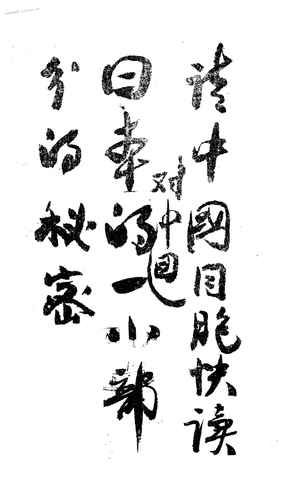 请中國同胞快读
日本对中国的一小部
分的秘密